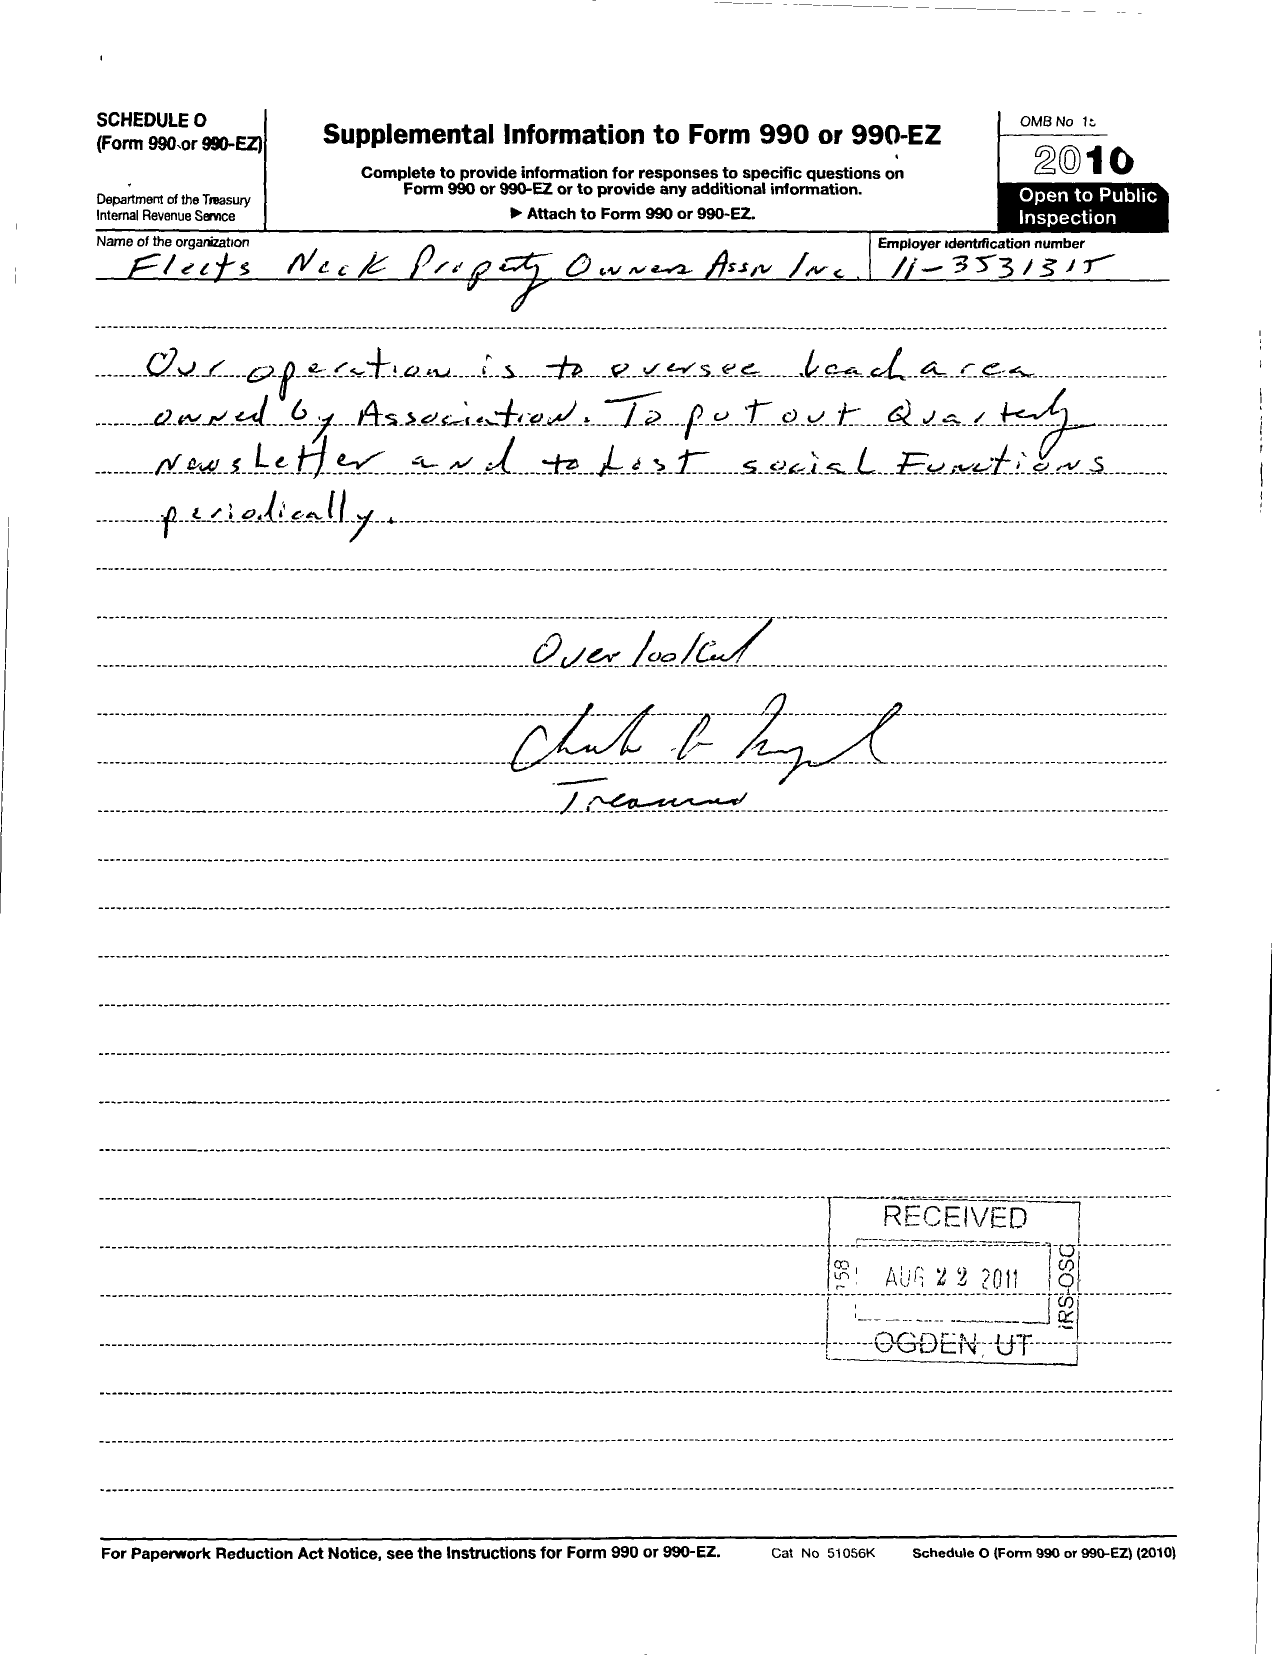 SCHEDULE O
(Form 990 or 990-EZ)
Department of the Treasury
Internal Revenue Service
Supplemental Information to Form 990 or 990-EZ
Complete to provide information for responses to specific questions on
Form 990 or 990-EZ or to provide any additional information.
▶ Attach to Form 990 or 990-EZ.
OMB No 15
2010
Open to Public
Inspection
Name of the organization
Fleets Neck Property Owners Assn Inc.
Employer identification number
11-3531315
Our operation is to oversee beach area
owned by Association. To put out Quarterly
Newsletter and to host social Functions
periodically.
Overlooked
Treasurer
RECEIVED
158
AUG 22 2011
IRS-OSC
OGDEN, UT
For Paperwork Reduction Act Notice, see the Instructions for Form 990 or 990-EZ.
Cat No 51056K
Schedule O (Form 990 or 990-EZ) (2010)